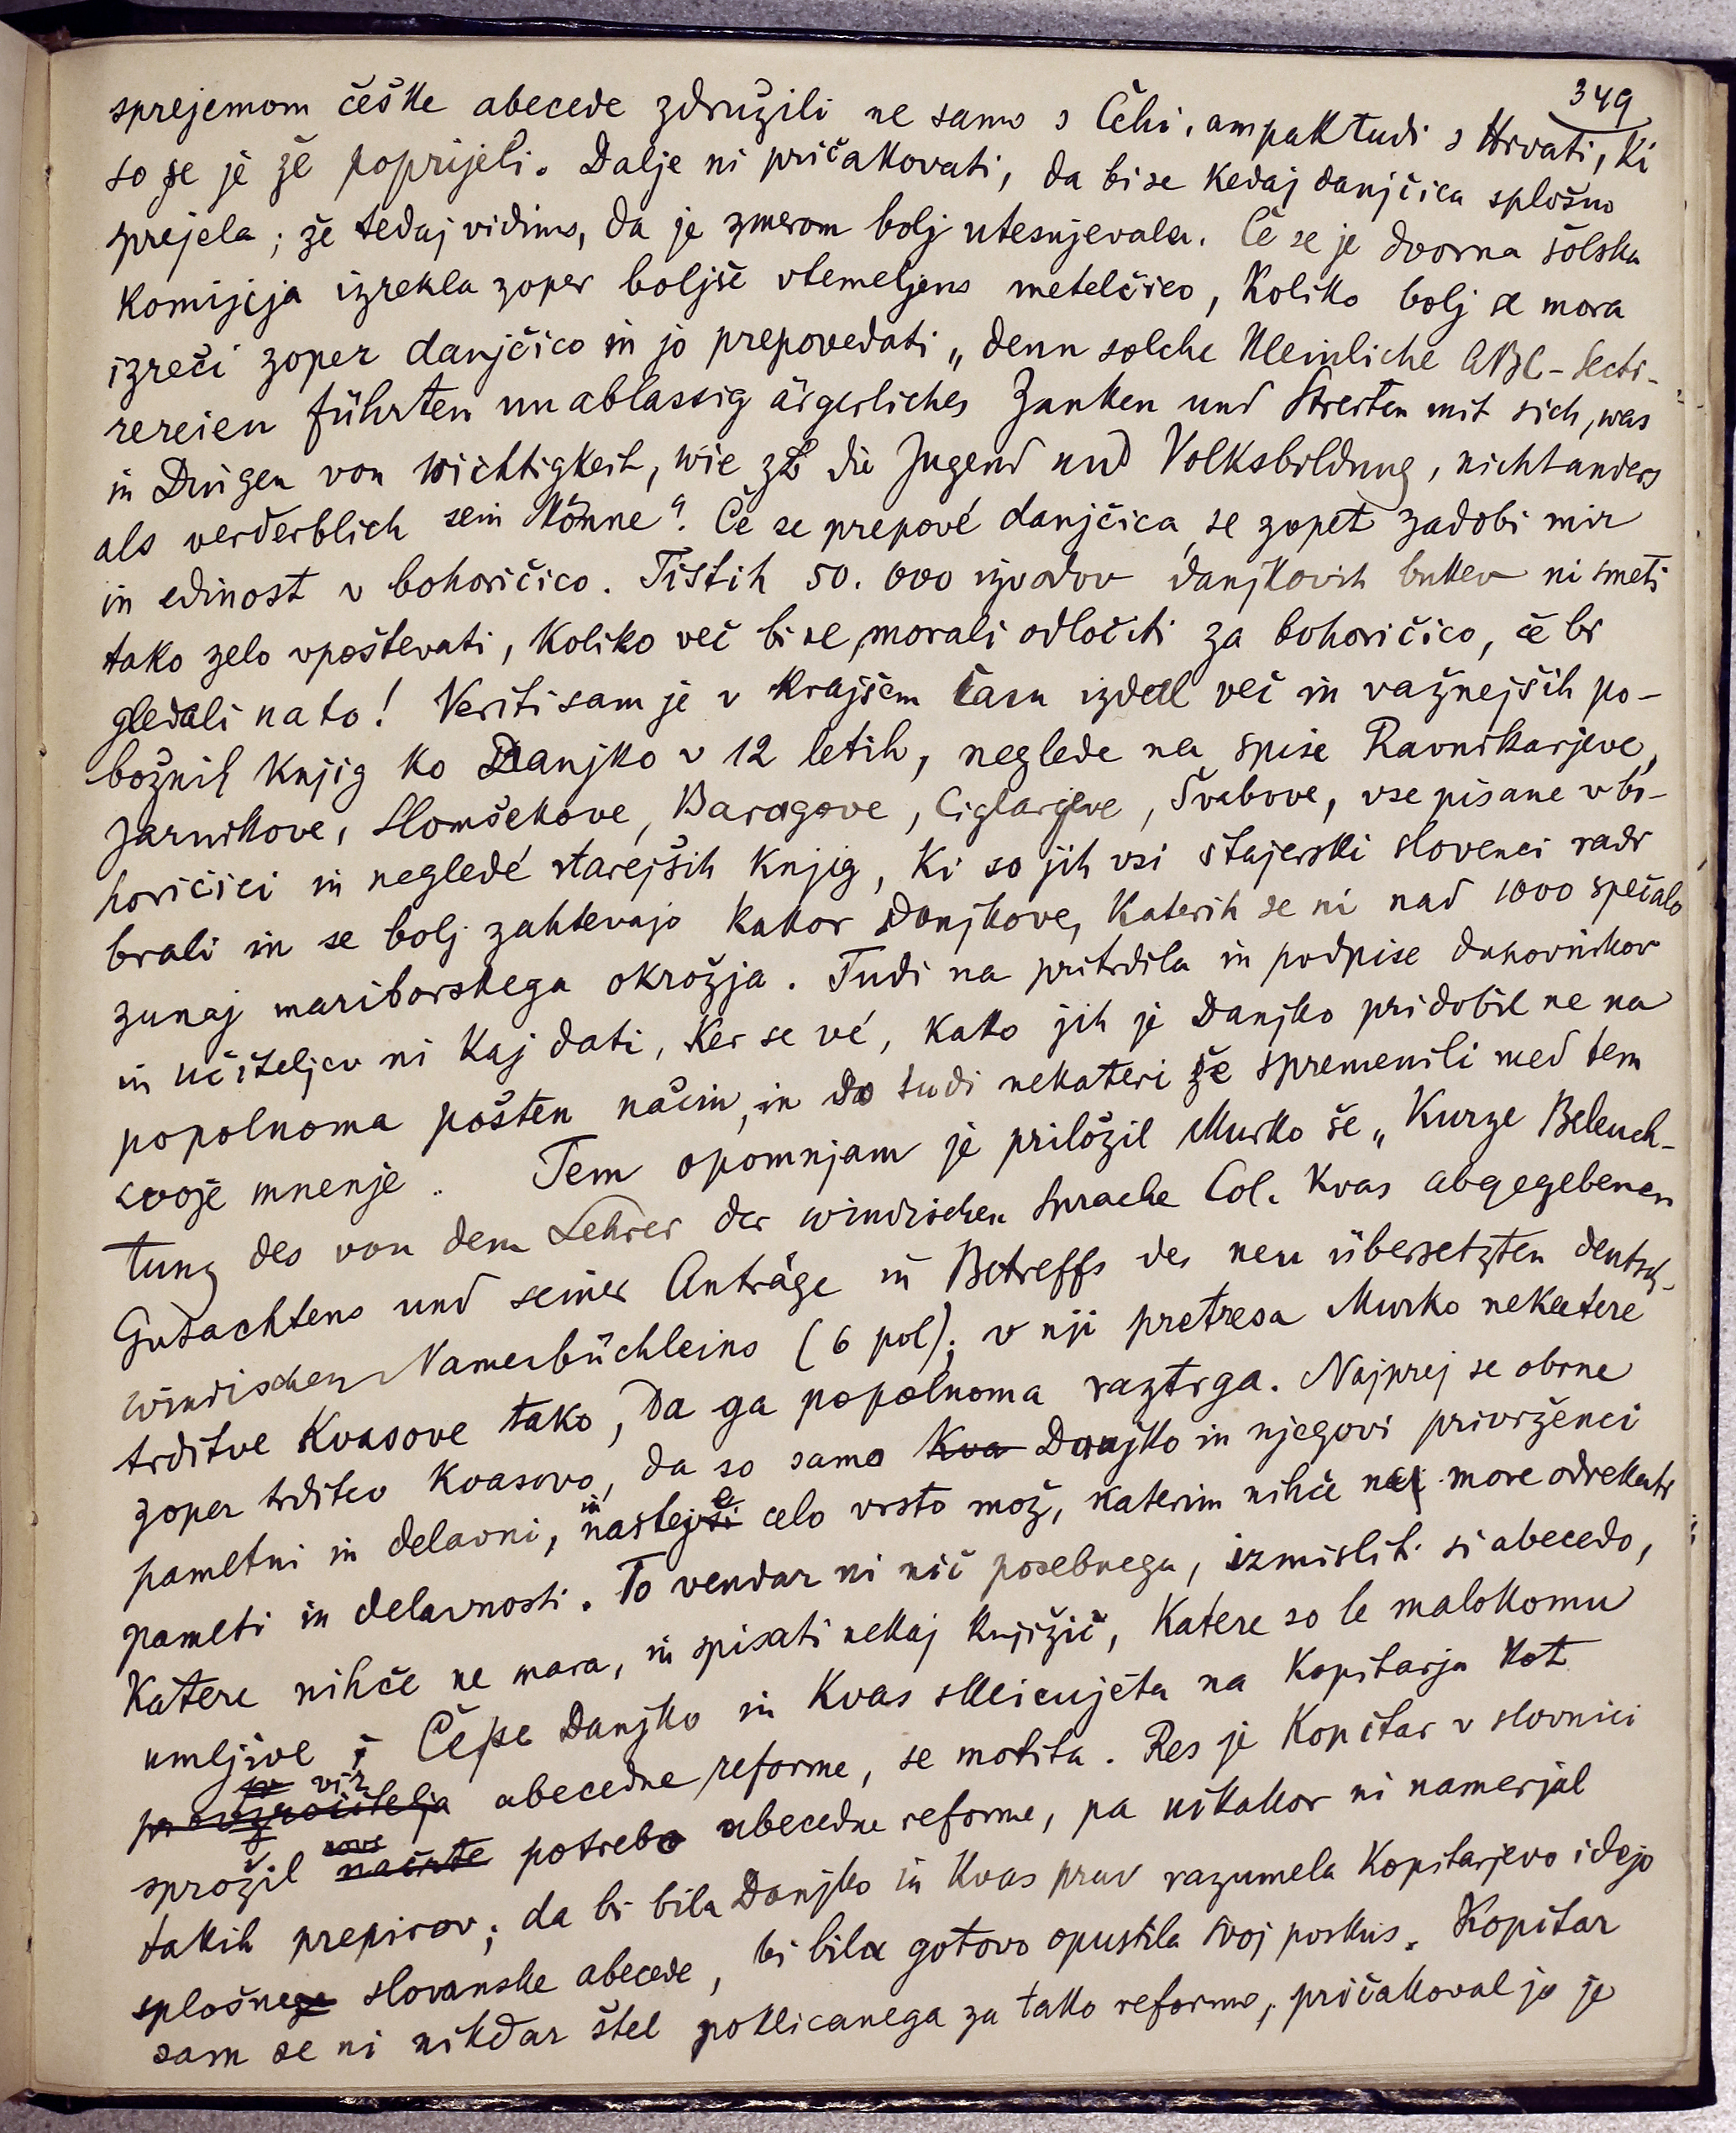 349
sprejemom češke abecede združili ne samo s Čehi, ampak tudi s Hrvati, ki
so se je že poprijeli. Dalje ni pričakovati, da bi se kedaj danjčica splošno
sprejela; že tedaj vidimo, da je zmerom bolj utesnjevala. Če se je dvorna šolska
komisija izrekla zoper boljše vtemeljeno metelčico, koliko bolj se mora
izreči zoper danjčico in jo prepovedati „denn solche kleinliche ABC-Secti-
rereien führten unablassig ärgerliches Zanken und Streiten mit sich, was
in Dingen von Wichtigkeit, wie zB die Jugend und Volksbildung, nicht anders
als verderblich sein könne“. Če se prepové danjčica, se zopet zadobi mir
in edinost v bohoričico. Tistih 50.000 izvodov danjkovih bukev ni smeti
tako zelo vpoštevati, koliko več bi se morali odločiti za bohoričico, če bi
gledali na to! Veriti sam je v krajšem času izdal več in važnejših po-
božnih knjig ko Danjko v 12 letih, neglede na spise Ravnikarjeve,
Jarnikove, Slomšekove, Baragove, Ciglarjeve, Švabove, vse pisane v bo-
horičici in neglede starejših knjig, ki so jih vsi štajerski slovenci radi
brali in se bolj zahtevajo kakor Danjkove, katerih se ni nad 1000 spečalo
zunaj mariborskega okrožja. Tudi na pritrdila in podpise duhovnikov
in učiteljev ni kaj dati, ker se vé, kako jih je Danjko pridobil ne na
popolnoma pošten način, in da tudi nekateri že spremenili med tem
svoje mnenje. Tem opomnjam je priložil Murko še „Kurze Beleuch-
tung des von dem Lehrer der windischen Sprache Col. Kvas abgegebenen
Gutachtens und seiner Anträge in Betreffs des neu übersetzten deutsch-
windischen Namenbüchleins (6 pol); v nji pretresa Murko nekatere
trditve Kvasove tako, da ga popolnoma raztrga. Najprej se obrne
zoper trditev Kvasovo, da so samo Kva Danjko in njegovi privrženci
pametni in delavni, in našteje celo vrsto mož, katerim nihče ne more odrekati
pameti in delavnosti. To vendar ni nič posebnega, izmisliti si abecedo,
katere nihče ne mara, in spisati nekaj knjižic, katere so le malokomu
umljive; Če se Danjko in Kvas sklicujeta na Kopitarja kot
povzročitelja vir abecedne reforme, se motita. Res je Kopitar v slovnici
sprožil načrte nove potrebo abecedne reforme, pa nikakor ni namerjal
takih prepirov; da bi bila Danjko in Kvas prav razumela Kopitarjevo idejo
splošne slovanske abecede, bi bila gotovo opustila svoj poskus. Kopitar
sam se ni nikdar štel poklicanega za tako reformo, pričakoval jo je